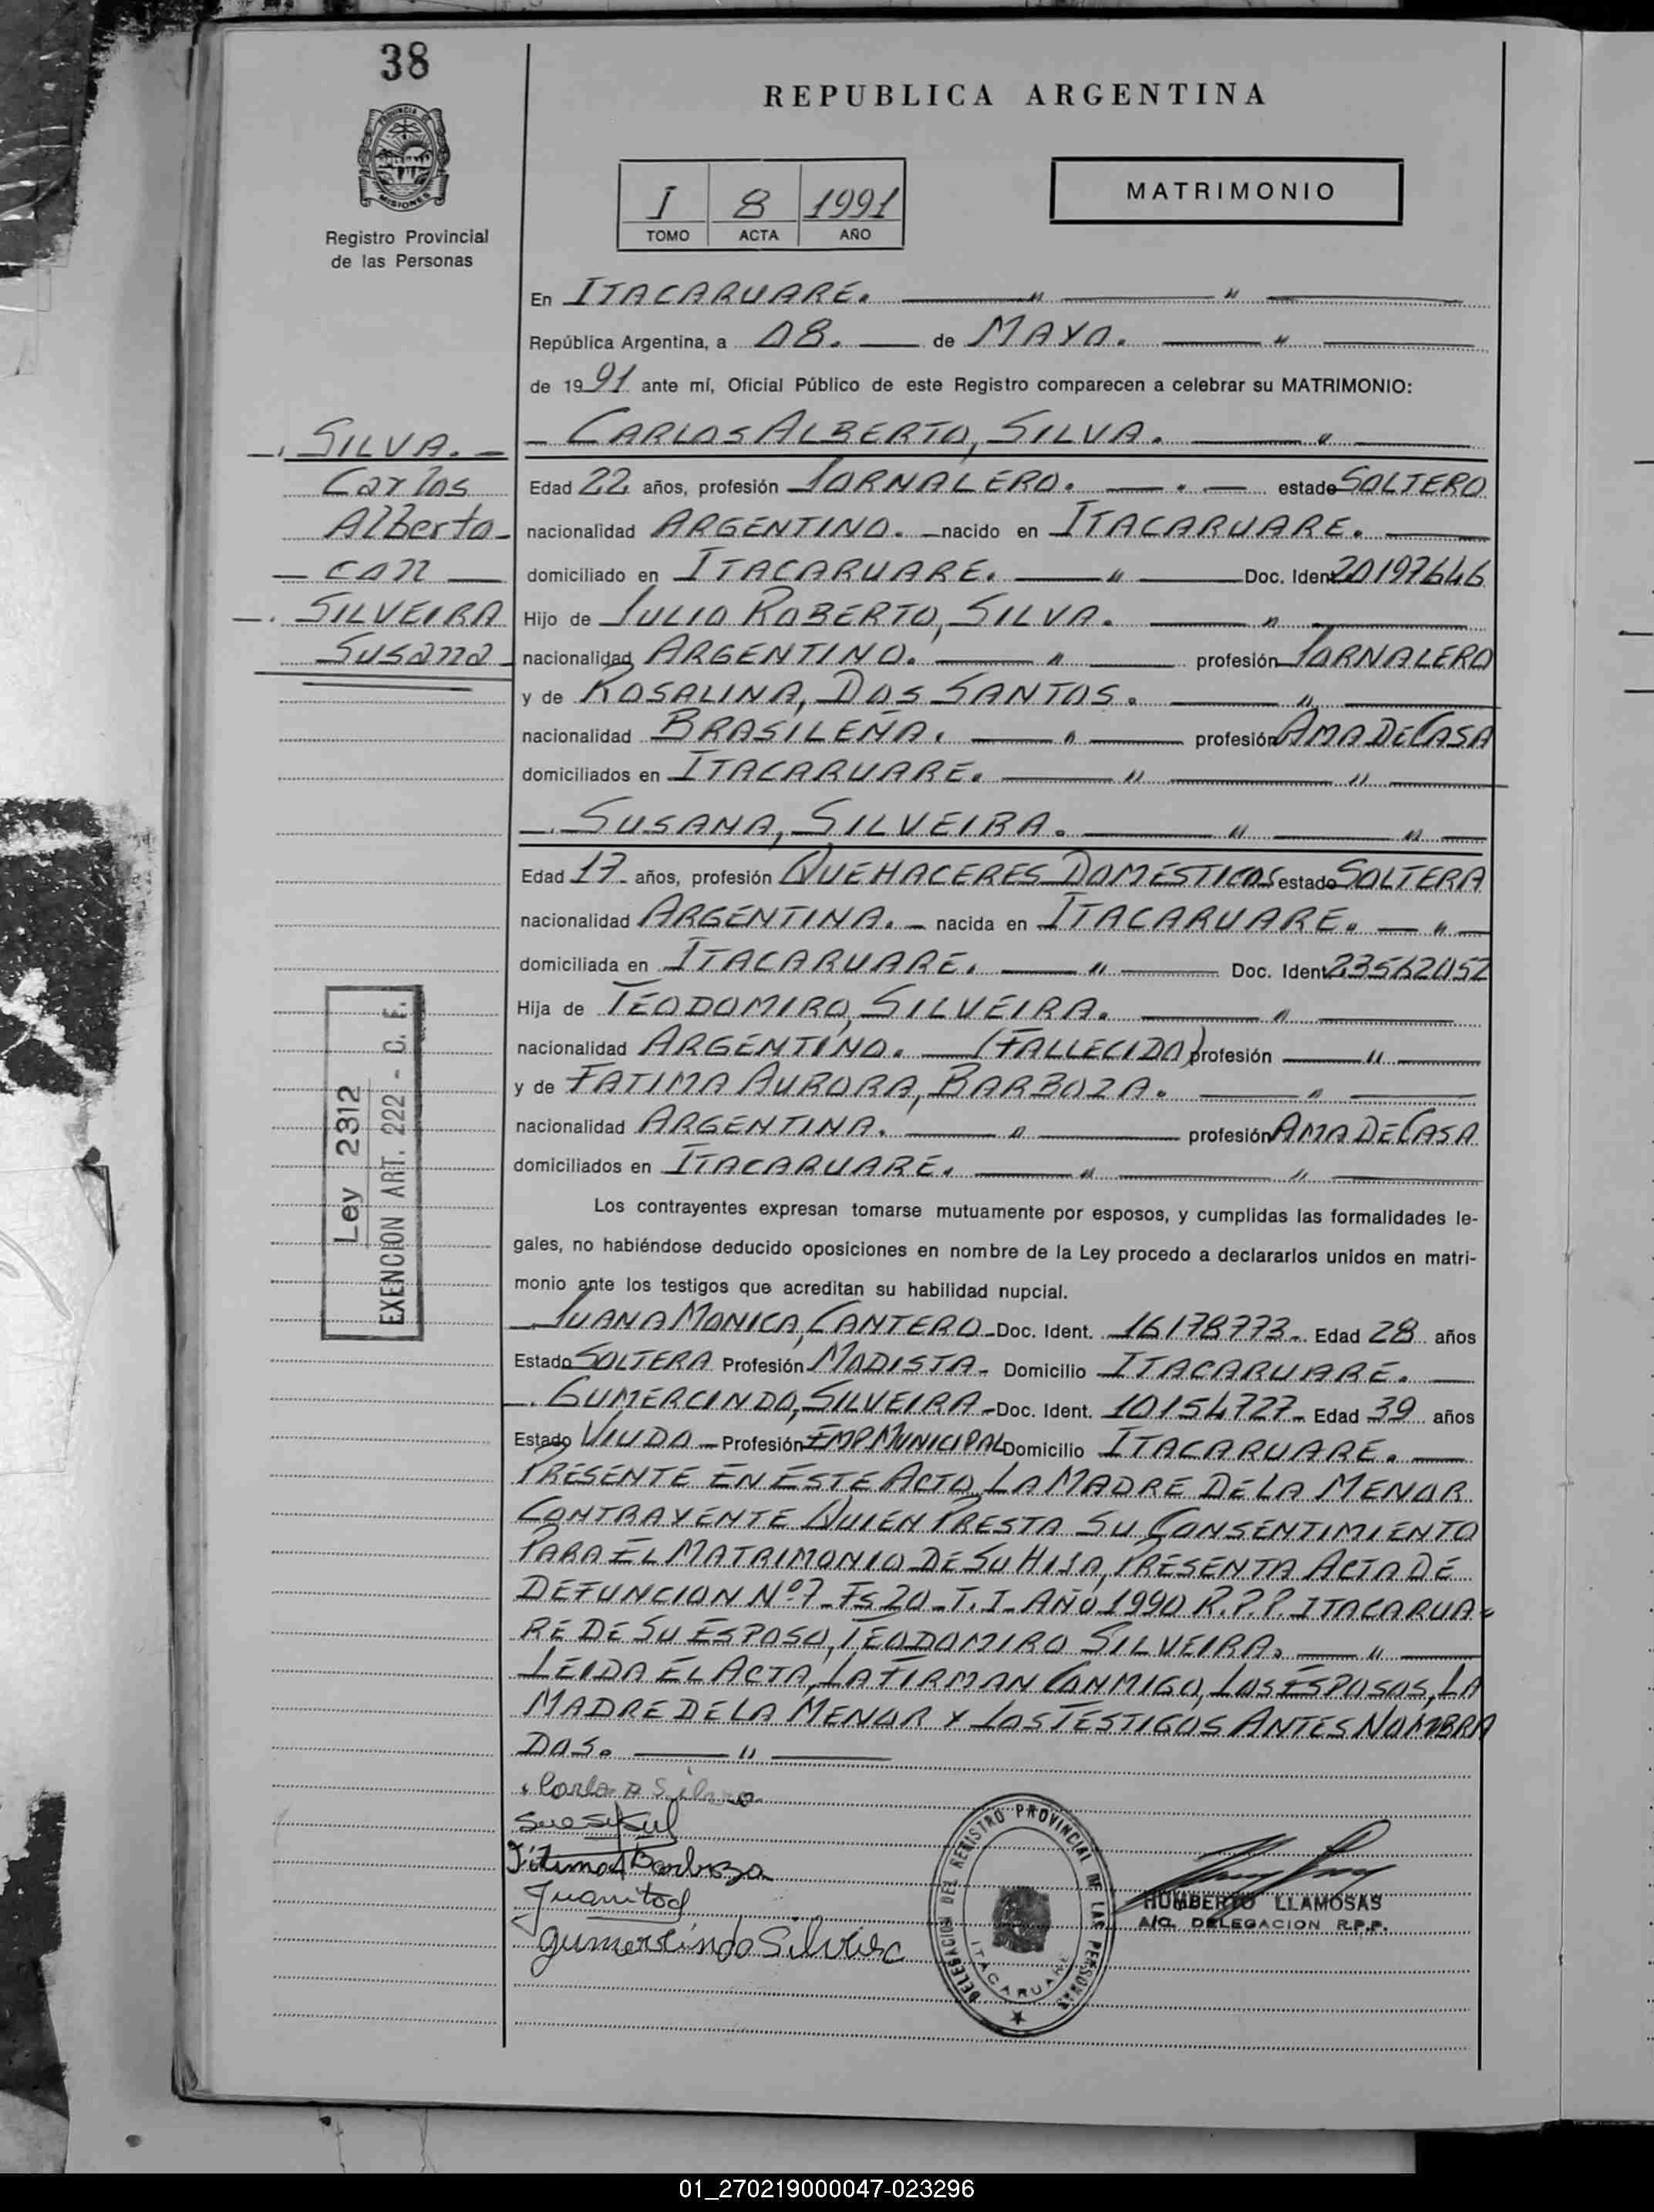 38
REPUBLICA ARGENTINA
PROVINCIA DE
MISIONES
Registro Provincial
de las Personas
I 8 1991
TOMO ACTA AÑO
MATRIMONIO
En ITACARUARE. — " — " —
República Argentina, a 08. — de MAYO. — " —
de 1991 ante mí, Oficial Público de este Registro comparecen a celebrar su MATRIMONIO:
— CARLOS ALBERTO, SILVA. — " —
Edad 22 años, profesión JORNALERO. — . — estado SOLTERO
nacionalidad ARGENTINO. — nacido en ITACARUARE. —
domiciliado en ITACARUARE. — " — Doc. Ident. 20197646
Hijo de JULIO ROBERTO, SILVA. — " —
nacionalidad ARGENTINO. — " — profesión JORNALERO
y de ROSALINA, DOS SANTOS. — " —
nacionalidad BRASILEÑA. — " — profesión AMA DE CASA
domiciliados en ITACARUARE. — " — " —
—. SUSANA, SILVEIRA. — " — " —
Edad 17 - años, profesión QUEHACERES DOMESTICOS estado SOLTERA
nacionalidad ARGENTINA. — nacida en ITACARUARE. — " —
domiciliada en ITACARUARE. — " — Doc. Ident. 23562052
Hija de TEODOMIRO, SILVEIRA. — " —
nacionalidad ARGENTINO. — (FALLECIDO) profesión — " —
y de FATIMA AURORA, BARBOZA. — " —
nacionalidad ARGENTINA. — " — profesión AMA DE CASA
domiciliados en ITACARUARE. — " — " —
Los contrayentes expresan tomarse mutuamente por esposos, y cumplidas las formalidades le-
gales, no habiéndose deducido oposiciones en nombre de la Ley procedo a declararlos unidos en matri-
monio ante los testigos que acreditan su habilidad nupcial.
—. JUANA MONICA, CANTERO - Doc. Ident. 16178773 - Edad 28 años
Estado SOLTERA Profesión MODISTA - Domicilio ITACARUARE. —
—. GUMERCINDO, SILVEIRA - Doc. Ident. 10154727 - Edad 39 años
Estado VIUDO — Profesión EMP. MUNICIPAL Domicilio ITACARUARE. —
PRESENTE EN ESTE ACTO, LA MADRE DE LA MENOR
CONTRAYENTE QUIEN PRESTA SU CONSENTIMIENTO
PARA EL MATRIMONIO DE SU HIJA, PRESENTA ACTA DE
DEFUNCION Nº 7 - Fs 20 - T. I - AÑO 1990 R.P.P. ITACARUA=
RE DE SU ESPOSO, TEODOMIRO SILVEIRA. — " —
LEIDA EL ACTA, LA FIRMAN CONMIGO, LOS ESPOSOS, LA
MADRE DE LA MENOR Y LOS TESTIGOS ANTES NOMBRA
DOS. — " —
Carlos A Silva
Fátima A Barboza
Juanitod
gumercindo Silveira
DELEGACION DEL REGISTRO PROVINCIAL DE LAS PERSONAS
ITACARUARE
HUMBERTO LLAMOSAS
A/C. DELEGACION R.P.P.
—. SILVA. —
Carlos
Alberto -
— con —
—. SILVEIRA
Susana
Ley 2312
EXENCION ART. 222 - C. F.
01_270219000047-023296